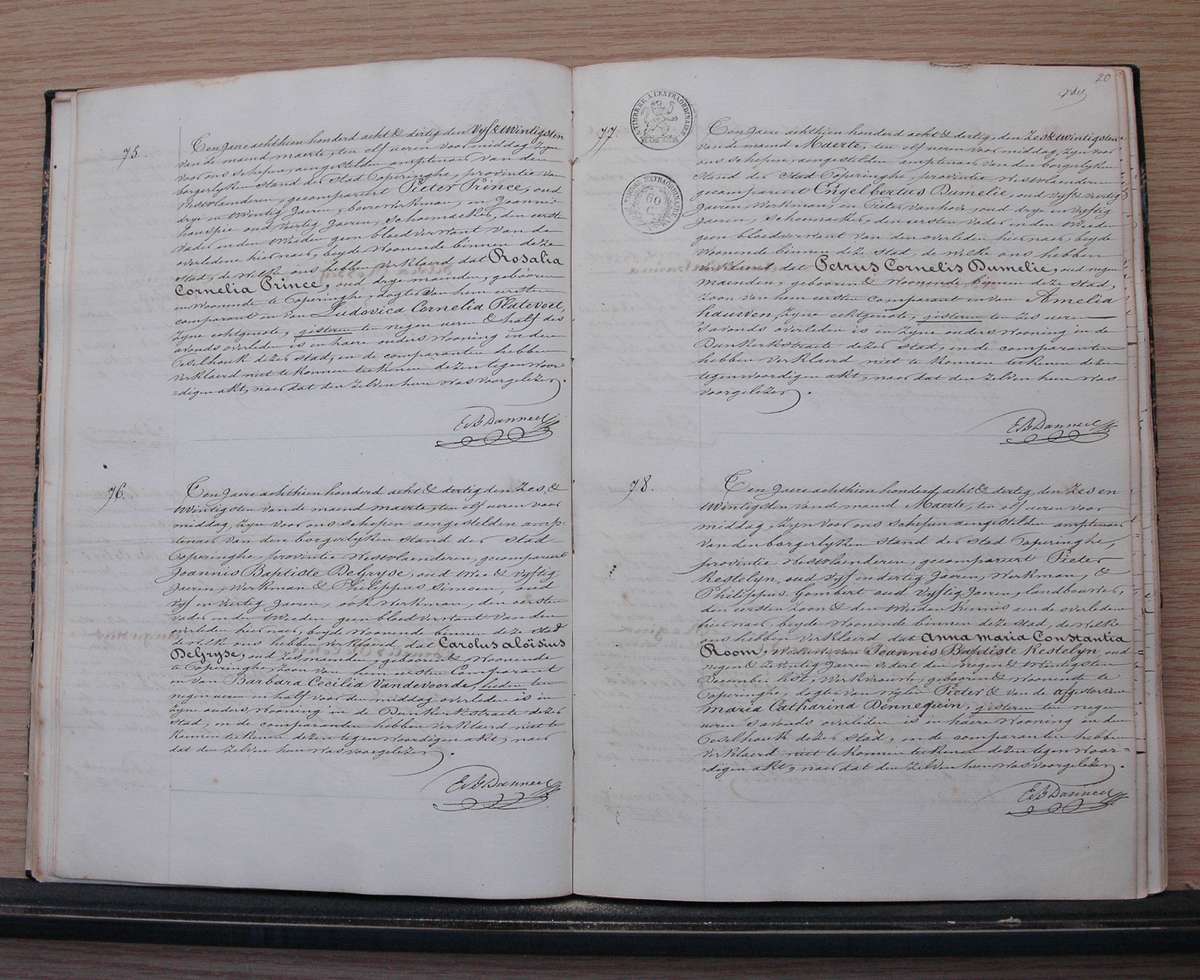 75.
Ten jaere achthien honderd acht & dertig den Vyf & twintigsten
van de maand maerte, ten elf ueren voor middag, zyn
voor ons schepen, aengestelden amptenaer van den
borgerlyken stand der Stad Poperinghe, provintie van
Westvlanderen, gecompareert Pieter Prince, oud
dry en twintig Jaeren, Werkman, en Joannes
oud Veertig Jaeren, Schoendekker, den eersten
vader en den Tweeden geen bloedverwant van de
overledene hier naer, beyde Woonende binnen deze
stad, de Welke ons hebben Verklaerd dat Rosalia
Cornelia Prince, oud dry maenden, geboren
en Woonende te Poperinghe, dogter van hem eersten
comparant en van Ludovica Cornelia Platevoet,
Zyne echtgenote, gisteren ten negen ueren & half des
avonds overleden is in haere ouders Wooning in den
dezer stad, en de comparanten hebben
Verklaerd niet te konnen teekenen dezen tegenwoor-
digen akt, naer dat den zelven hem was Voorgelezen.
E.B. Danneel
76.
Ten jaere achthien honderd acht & dertig den Zes &
twintigsten van de maand maerte, ten elf ueren voor
middag, zyn voor ons schepen aengestelden amp-
tenaer van den borgerlyken stand der stad
Poperinghe, provintie Westvlanderen, gecompareert
Joannis Baptiste DeGryse, oud Twee & Vyftig
Jaeren, Werkman & Philippus Simoen, oud
Vyf en Veertig Jaeren, ook Werkman, den eersten
vader en den Tweeden geen bloedverwant van den
overleden hier naer, beyde Woonende binnen deze stad
de Welke ons hebben Verklaerd dat Carolus aloïsius
DeGryse, oud zes maenden, geboren & Woonende
te Poperinghe, Zoon van hem eersten Comparant
en van Barbara Cecilia Vandevoorde, heden ten
negen ueren en half voor de middag overleden is in
zyne ouders Wooning in de Dunkerkstraete dezer
Stad, en de comparanten hebben Verklaerd niet te
konnen teekenen dezen tegenwoordigen akt, naer
dat den zelven hem Was voorgelezen.
E.B. Danneel
20
77.
TIMBRE A L'EXTRAORDINAIRE
60
C
Ten jaere achthien honderd acht & dertig den Zes & twintigsten
van de maand Maerte, ten elf ueren voor middag, zyn voor
ons schepen, aengestelden amptenaer van den borgerlyken
Stand der Stad Poperinghe, provintie Westvlanderen
gecompareert Engelbertus Dumelie, oud Vyf & Veertig
Jaeren, Werkman, en Pieter oud dry en Vyftig
Jaeren, Schoenmaker, den eersten vader en den Tweeden
geen bloedverwant van den overleden hier naer, beyde
Woonende binnen deze Stad, de Welke ons hebben
Verklaerd dat Petrus Cornelis Dumelie, oud negen
maenden, geboren & Woonende binnen deze stad,
Zoon van hem eersten comparant en van Amelia
zyne echtgenote, gisteren ten zes ueren
s'avonds overleden is in zyne ouders Wooning in de
Dunkerkstraete dezer stad, en de comparanten
hebben Verklaerd niet te konnen teekenen dezen
tegenwoordigen akt, naer dat den zelven hem was
voorgelezen.
E.B. Danneel
78.
Ten jaere achthien honderd acht & dertig, den Zes en
twintigsten van de maand Maerte, ten elf ueren voor
middag, zyn voor ons schepen aengestelden amptenaer
van den borgerlyken stand der stad Poperinghe,
provintie Westvlanderen, gecompareert Pieter
Kestelyn, oud Vyf en dertig Jaeren, Werkman, &
Philippus Gombert oud Vyftig Jaeren, landbouwer,
den eersten Zoon & den Tweeden Kennis van de overledene
hier naer, beyde Woonende binnen deze stad, de Welke
ons hebben Verklaerd dat Anna Maria Constantia
Room, Weduwe van Joannis Baptiste Kestelyn, oud
negen & Zeventig Jaeren zedert den negen & twintigsten
december lest, Werkvrouw, geboren & Woonende te
Poperinghe, dogter van wylen Pieter & van de afgestorven
maria Catharina Dennequin, gisteren ten negen
ueren s'avonds overleden is in haere Wooning in den
dezer stad, en de comparanten hebben
Verklaerd niet te konnen teekenen dezen tegenwoor-
digen akt, naer dat den zelven hem was voorgelezen.
E.B. Danneel